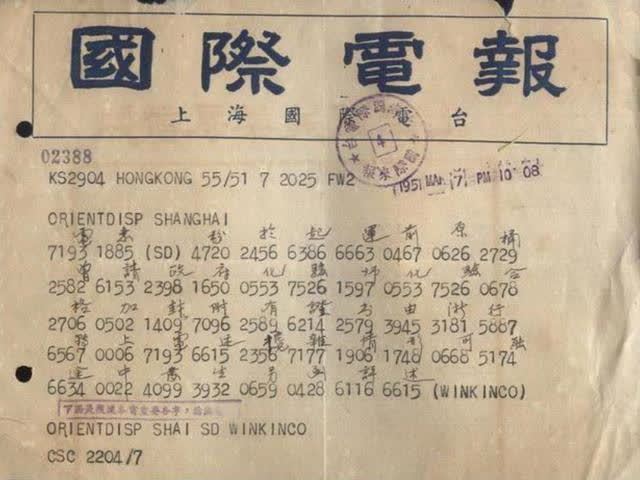 國際電報
上海國際電台
02388
KS2904 HONGKONG 55/51 7 2025 FW2
1951 MAR 7 PM 10 08
ORIENTDISP SHANGHAI
起運前原桶
7193 1885 (SD) 4720 2456 6386 6663 0467 0626 2729
曾請政府化驗師化驗合
2582 6153 2398 1650 0553 7526 1597 0553 7526 0678
格加封附有證
2706 0502 1409 7096 2589 6214 2579 3945 3181 5887
務上電述 雖情形可
6567 0006 7193 6615 2356 7177 1906 1748 0668 5174
途中 生另函詳述
6634 0022 4099 3932 0659 0428 6116 6615 (WINKINCO)
ORIENTDISP SHAI SD WINKINCO
CSC 2204/7